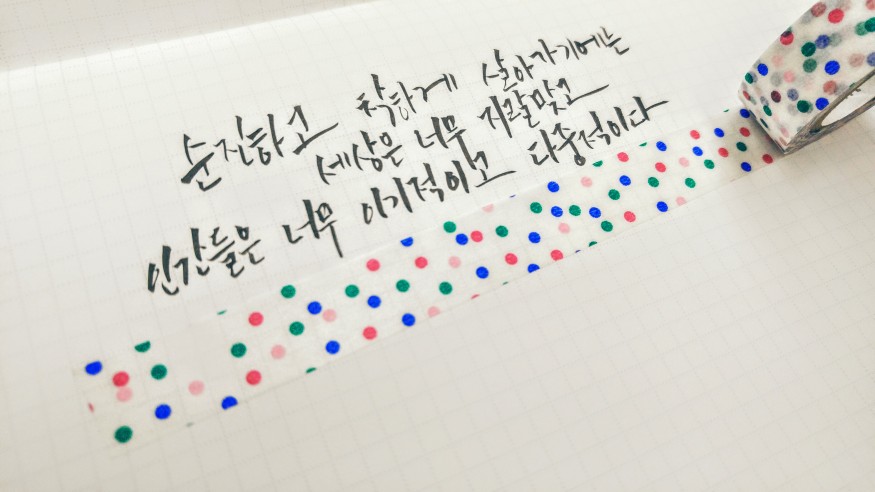 순진하고 착하게 살아가기에는
세상은 너무 지랄맞고
인간들은 너무 이기적이고 다중적이다